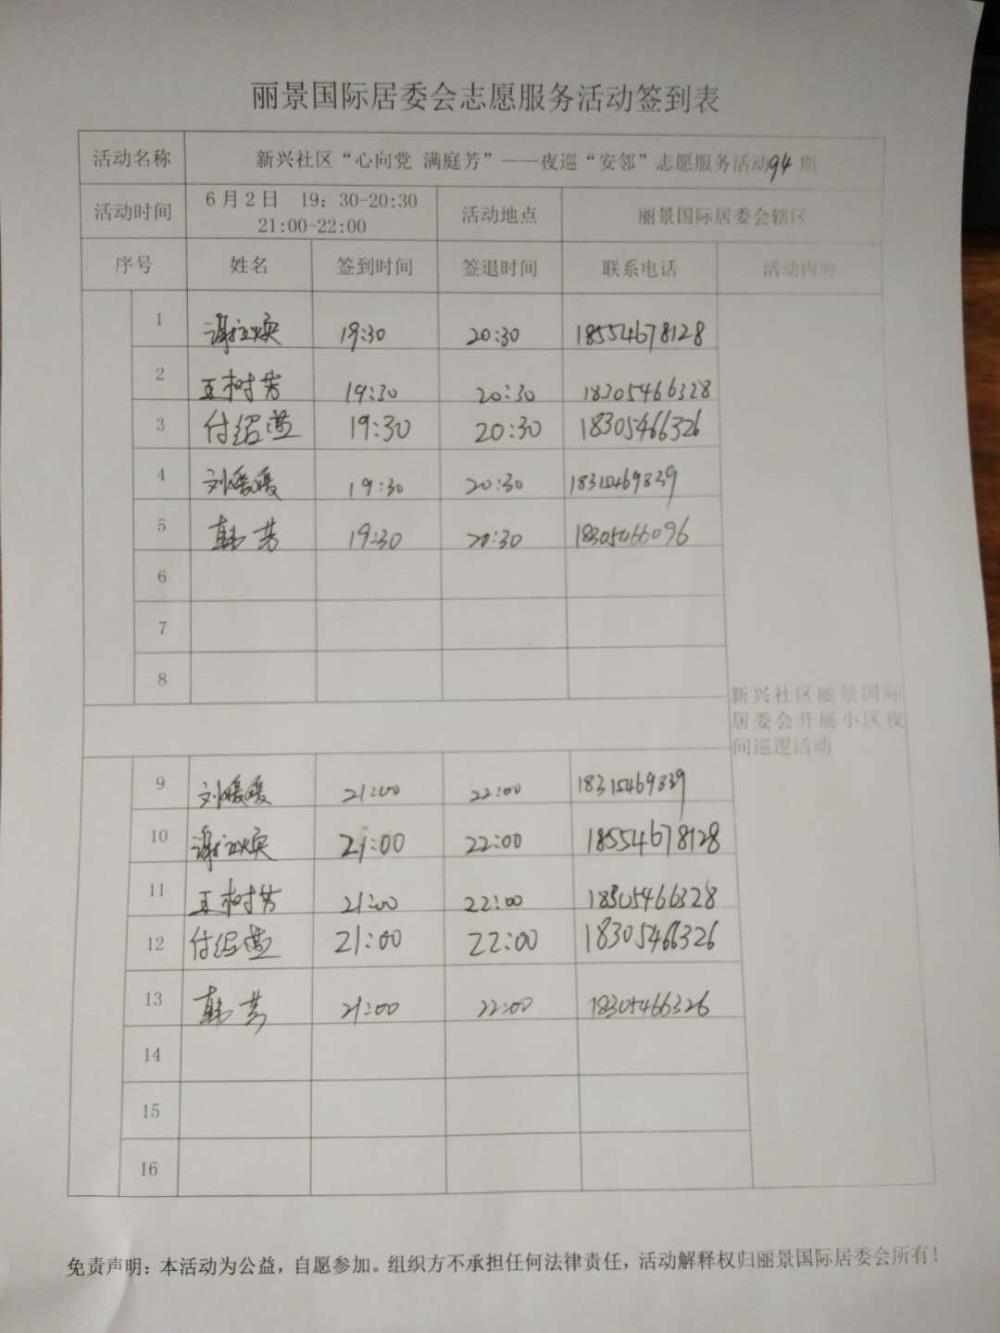 丽景国际居委会志愿服务活动签到表
活动名称 新兴社区“心向党 满庭芳”——夜巡“安邻”志愿服务活动94期
活动时间 6月2日 19：30-20:30
21:00-22:00 活动地点 丽景国际居委会辖区
序号 姓名 签到时间 签退时间 联系电话 活动内容
1 19:30 20:30 18554678128
2 王树芳 19:30 20:30 18305466328
3 付绍燕 19:30 20:30 18305466326
4 刘媛媛 19:30 20:30 18315469839
5 韩芳 19:30 20:30 18305466096
6
7
8
新兴社区丽景国际
居委会开展小区夜
间巡逻活动
9 刘媛媛 21:00 22:00 18315469839
10 21:00 22:00 18554678128
11 王树芳 21:00 22:00 18305466328
12 付绍燕 21:00 22:00 18305466326
13 韩芳 21:00 22:00 18305466326
14
15
16
免责声明：本活动为公益，自愿参加。组织方不承担任何法律责任，活动解释权归丽景国际居委会所有！